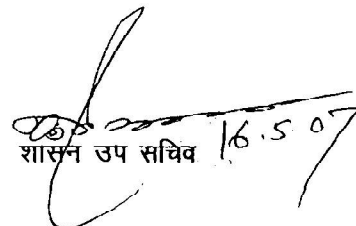 शासन उप सचिव 16.5.07